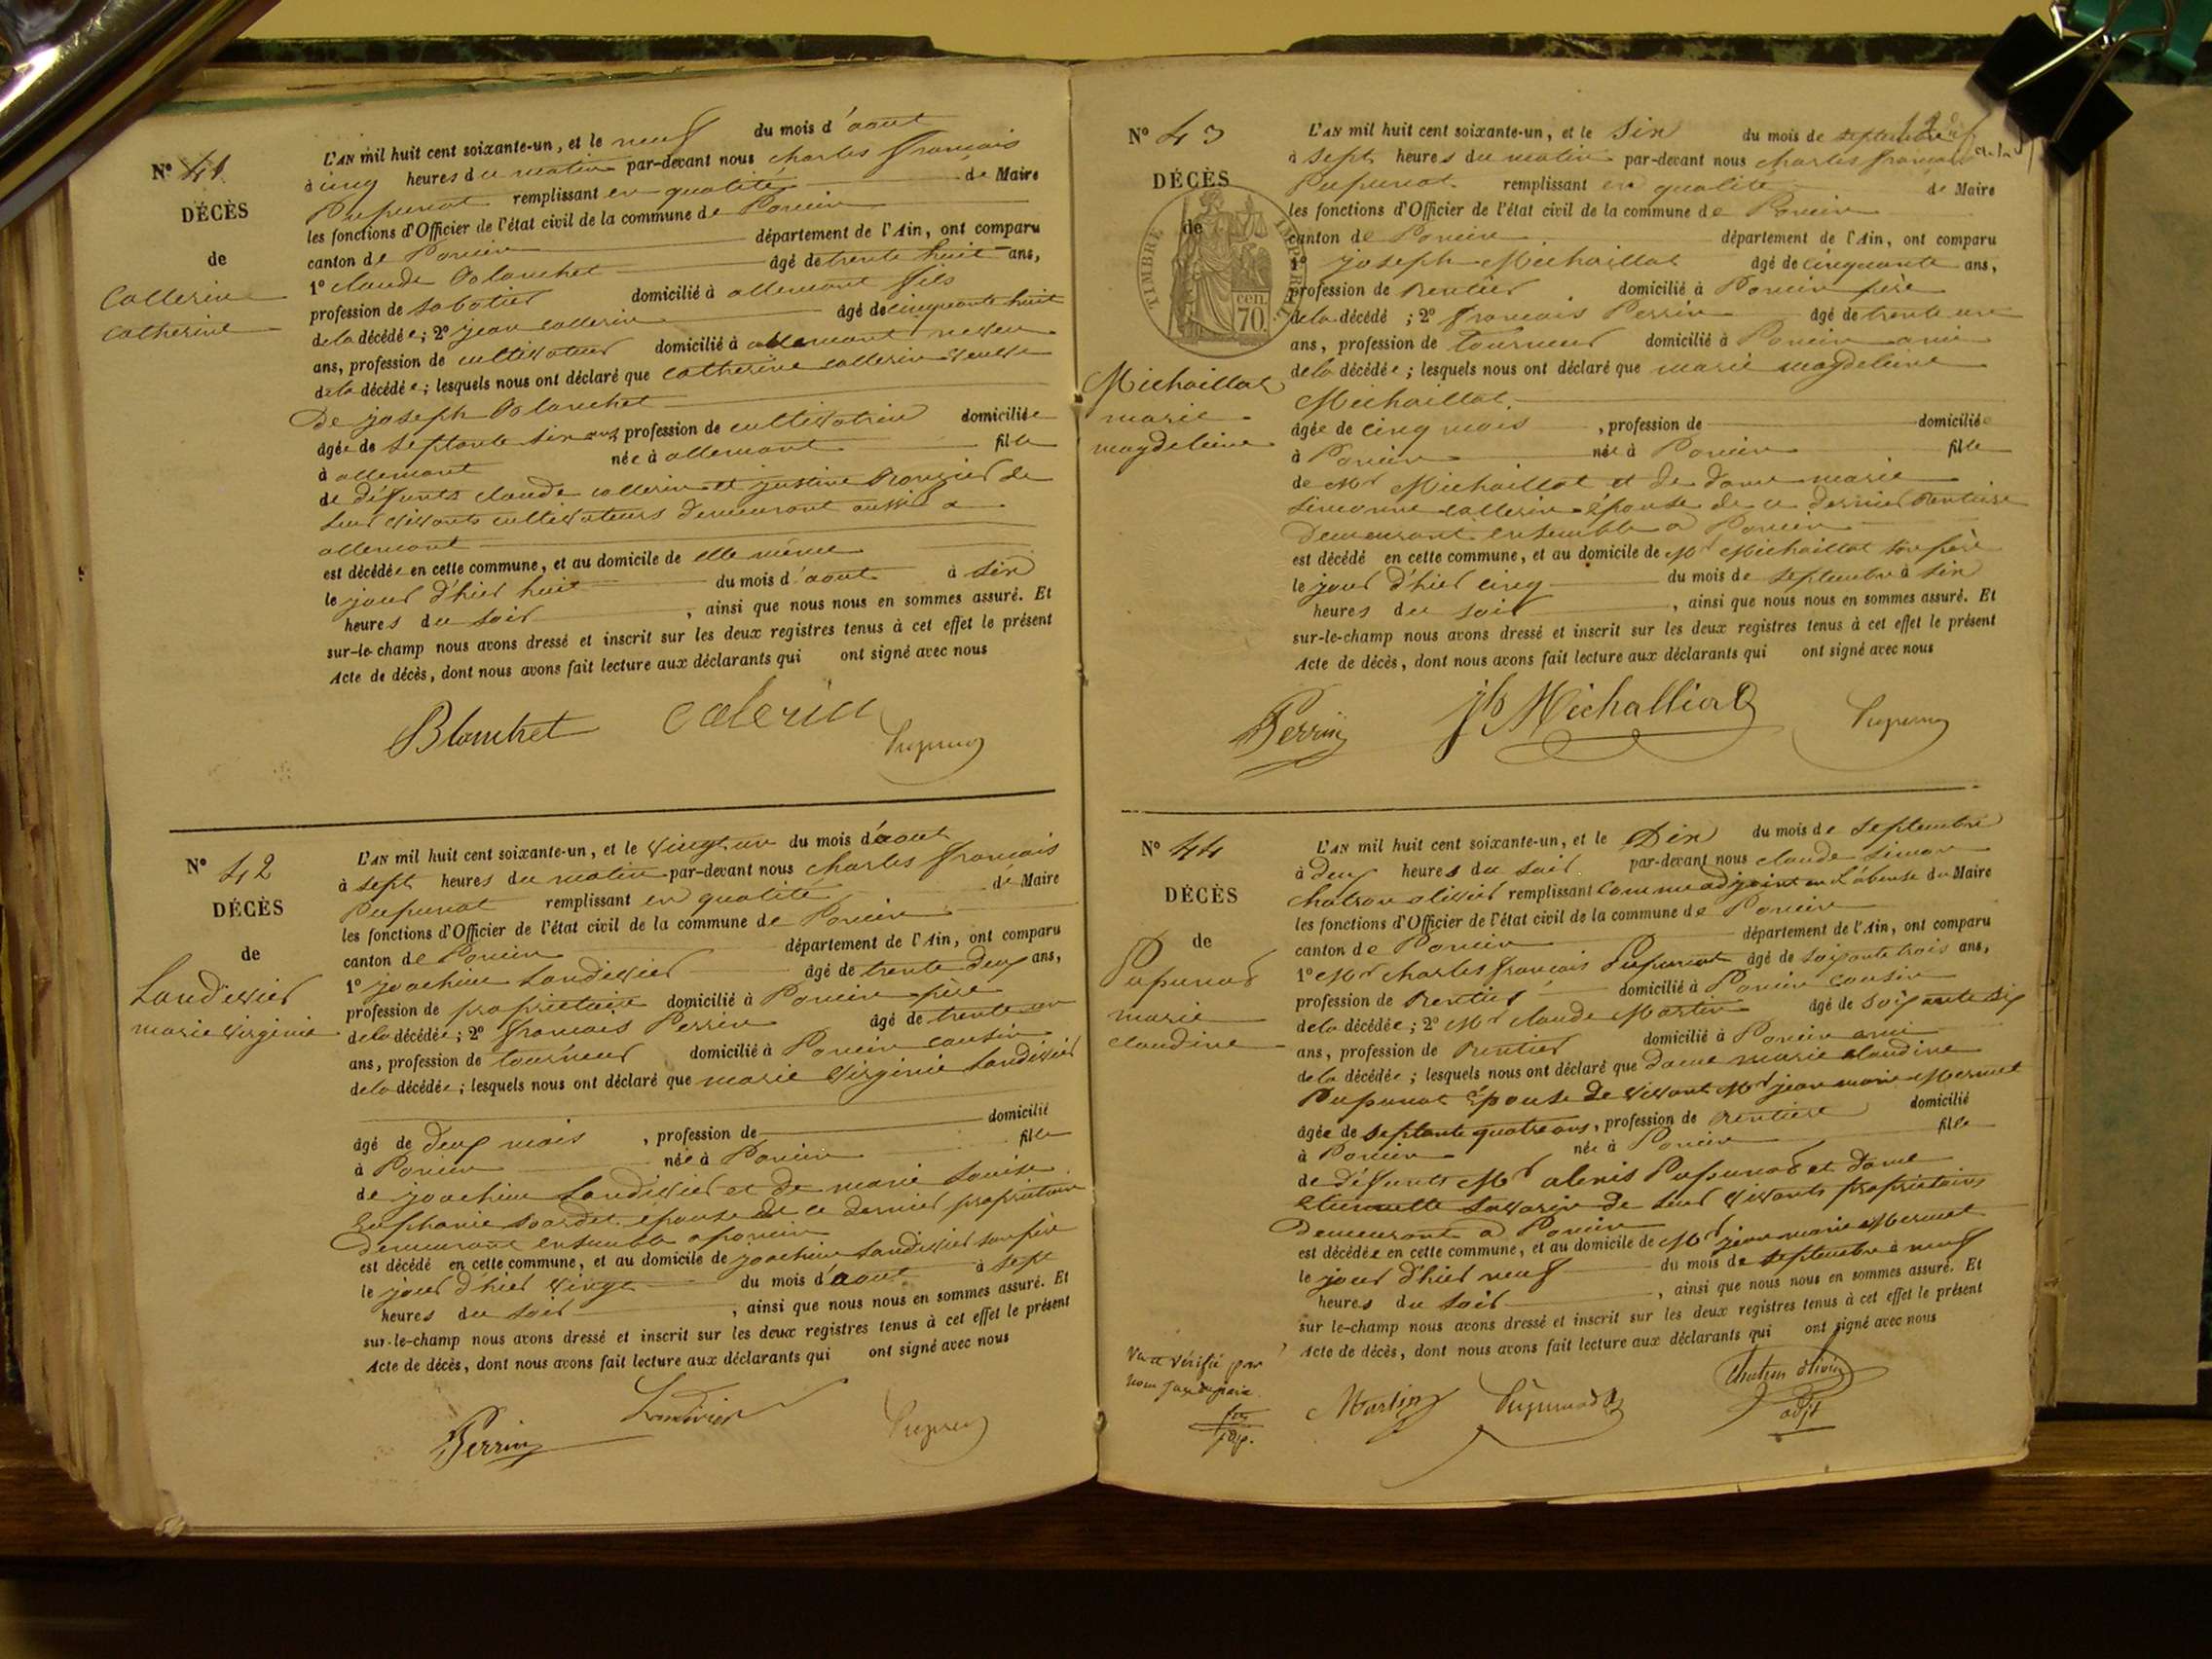 N° 41
DÉCÈS
de
Collerin
catherine
L'AN mil huit cent soixante-un, et le neuf du mois d'aout
à cinq heures du matin par-devant nous charles francois
Pupunat remplissant en qualité de Maire
les fonctions d'Officier de l'état civil de la commune de Poncin
canton de Poncin département de l'Ain, ont comparu
1° claude Blanchet âgé de trente huit ans,
profession de sabotier domicilié à allement fils
de la décédée; 2° jean collerin âgé de cinquante huit
ans, profession de cultivateur domicilié à allement neveu
de la décédée; lesquels nous ont déclaré que catherine collerin veuve
De joseph Blanchet
âgée de septante six ans, profession de cultivatrice domiciliée
à allement née à allement fille
de défunts claude collerin et justine de
leur vivants cultivateurs demeurant aussi a
allement
est décédée en cette commune, et au domicile de elle même
le jour d'hier huit du mois d'aout à six
heures du soir, ainsi que nous nous en sommes assuré. Et
sur-le-champ nous avons dressé et inscrit sur les deux registres tenus à cet effet le présent
Acte de décès, dont nous avons fait lecture aux déclarants qui ont signé avec nous
Blanchet calerin Pupunat
N° 42
DÉCÈS
de
Landivier
marie virginie
L'AN mil huit cent soixante-un, et le vingt un du mois d'aout
à sept heures du matin par-devant nous charles francois
Pupunat remplissant en qualité de Maire
les fonctions d'Officier de l'état civil de la commune de Poncin
canton de Poncin département de l'Ain, ont comparu
1° joachim Landivier âgé de trente deux ans,
profession de propriétaire domicilié à Poncin père
de la décédée; 2° francois Perrin âgé de trente un
ans, profession de tourneur domicilié à Poncin cousin
de la décédée; lesquels nous ont déclaré que marie virginie Landivier
âgé de deux mois, profession de domicilié
à Poncin née à Poncin fille
de joachim Landivier et de marie Louise
Euphanie épouse de ce dernier propriétaire
demeurant ensemble a poncin
est décédé en cette commune, et au domicile de joachim Landivier son père
le jour d'hier vingt du mois d'aout à sept
heures du soir, ainsi que nous nous en sommes assuré. Et
sur-le-champ nous avons dressé et inscrit sur les deux registres tenus à cet effet le présent
Acte de décès, dont nous avons fait lecture aux déclarants qui ont signé avec nous
Perrin Landivier Pupunat
N° 43
DÉCÈS
de
TIMBRE IMPERIAL
cen.
70.
Michaillat
marie
magdeleine
L'AN mil huit cent soixante-un, et le six du mois de septembre
à sept heures du matin par-devant nous charles francois
Pupunat remplissant en qualité de Maire
les fonctions d'Officier de l'état civil de la commune de Poncin
canton de Poncin département de l'Ain, ont comparu
1° joseph Michaillat âgé de cinquante ans,
profession de Rentier domicilié à Poncin père
de la décédé; 2° francois Perrin âgé de trente un
ans, profession de Tourneur domicilié à Poncin ami
de la décédée; lesquels nous ont déclaré que marie magdeleine
Michaillat.
âgée de cinq mois, profession de domiciliée
à Poncin née à Poncin fille
de Mr Michaillat et de dame marie
simonne collerin épouse de ce dernier Rentière
Demeurant ensemble a Poncin
est décédé en cette commune, et au domicile de Mr Michaillat son père
le jour d'hier cinq du mois de septembre à six
heures du soir, ainsi que nous nous en sommes assuré. Et
sur-le-champ nous avons dressé et inscrit sur les deux registres tenus à cet effet le présent
Acte de décès, dont nous avons fait lecture aux déclarants qui ont signé avec nous
Perrin jh Michalliat Pupunat
N° 44
DÉCÈS
de
Pupunat
marie
claudine
L'AN mil huit cent soixante-un, et le Dix du mois de septembre
à deux heures du soir par-devant nous claude simon
chatron olivier remplissant comme adjoint en l'absense du Maire
les fonctions d'Officier de l'état civil de la commune de Poncin
canton de Poncin département de l'Ain, ont comparu
1° Mr charles francois Pupunat âgé de soixante trois ans,
profession de Rentier domicilié à Poncin cousin
de la décédée; 2° Mr claude Martin âgé de soixante six
ans, profession de Rentier domicilié à Poncin ami
de la décédée; lesquels nous ont déclaré que dame marie claudine
Pupunat épouse de vivant Mr jean marie Mermet
âgée de septante quatre ans, profession de Rentière domicilié
à Poncin née à Poncin fille
de défunts Mr alexis Pupunat et dame
Etiennette Savarin de leur vivants propriétaires
Demeurant a Poncin
est décédée en cette commune, et au domicile de Mr jean marie Mermet
le jour d'hier neuf du mois de septembre à neuf
heures du soir, ainsi que nous nous en sommes assuré. Et
sur le-champ nous avons dressé et inscrit sur les deux registres tenus à cet effet le présent
Acte de décès, dont nous avons fait lecture aux déclarants qui ont signé avec nous
Vu et vérifié par
nous juge de paix
Martin Pupunat Chatron olivier
adjt